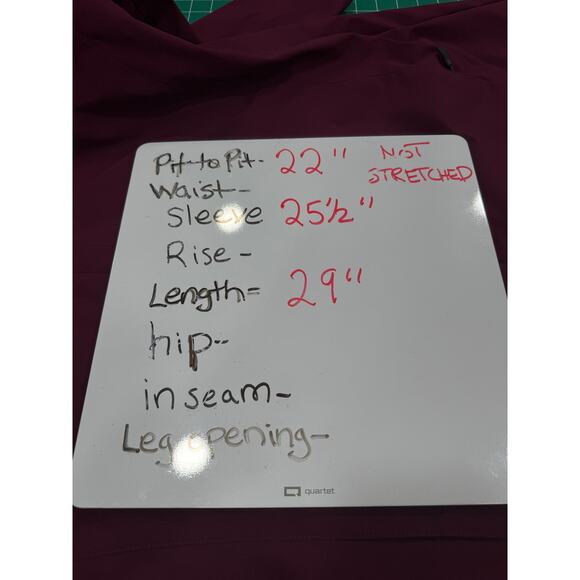 Pit-to Pit- 22" NOT
STRETCHED
Waist-
Sleeve 25½"
Rise-
Length= 29"
hip-
inseam-
Leg opening-
quartet